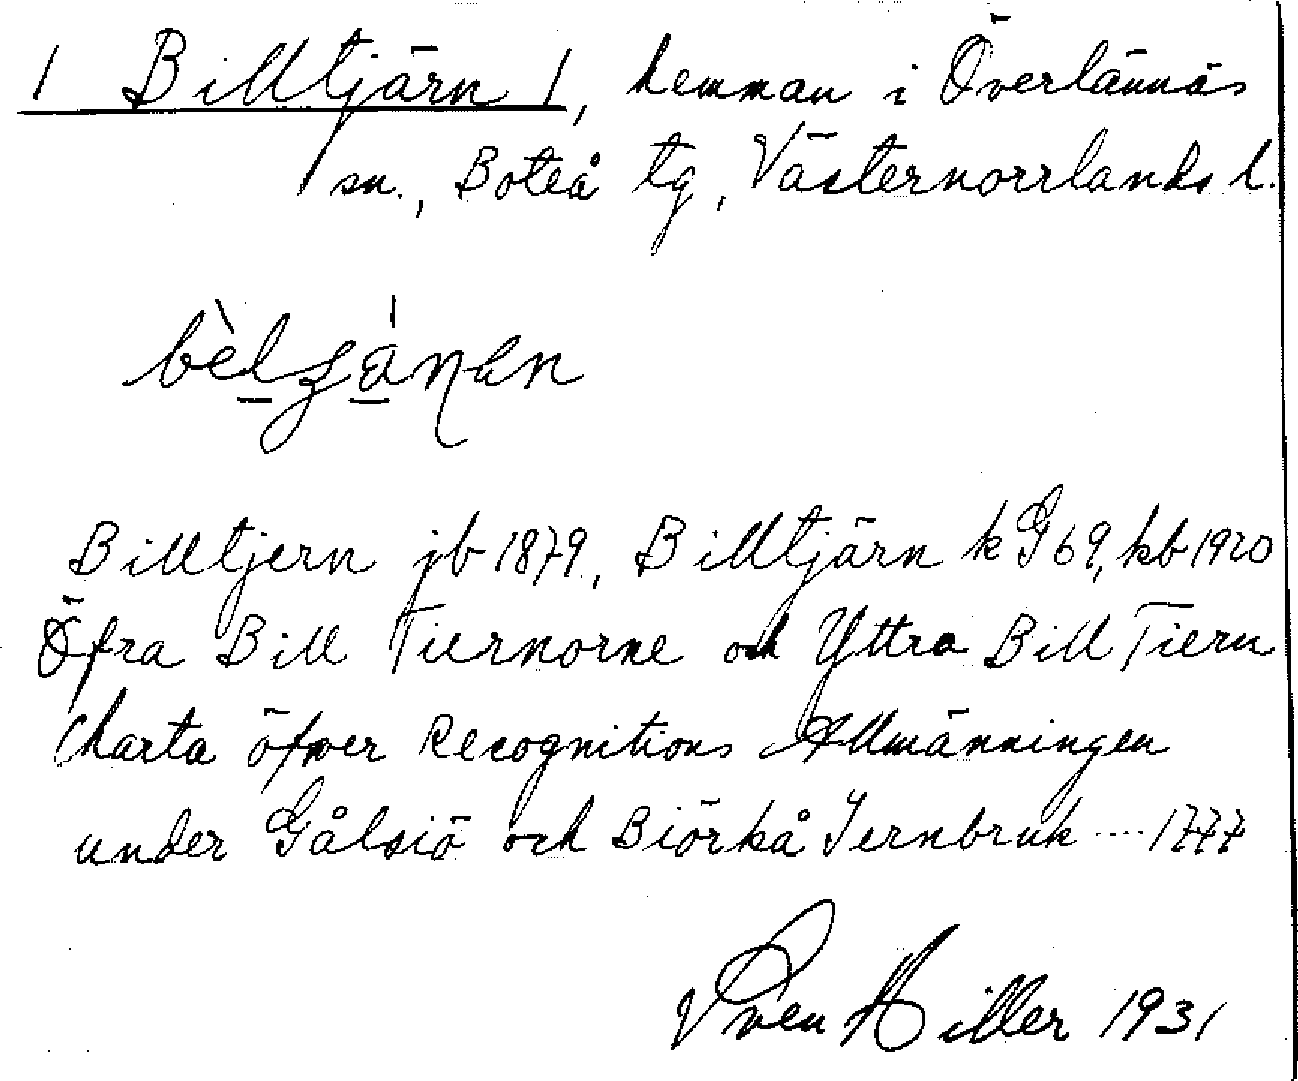 1 Billtjärn 1, hemman i Överlännäs
sn., Boteå tg, Västernorrlands l.
Billtjern jb 1879, Billtjärn k G 69, kb 1920
Öfra Bill Tiernorne och Yttra Bill Tiern
Charta öfwer Recognitions Allmänningen
under Gålsiö och Biörkå Jernbruk .... 1777
Sven Hiller 1931